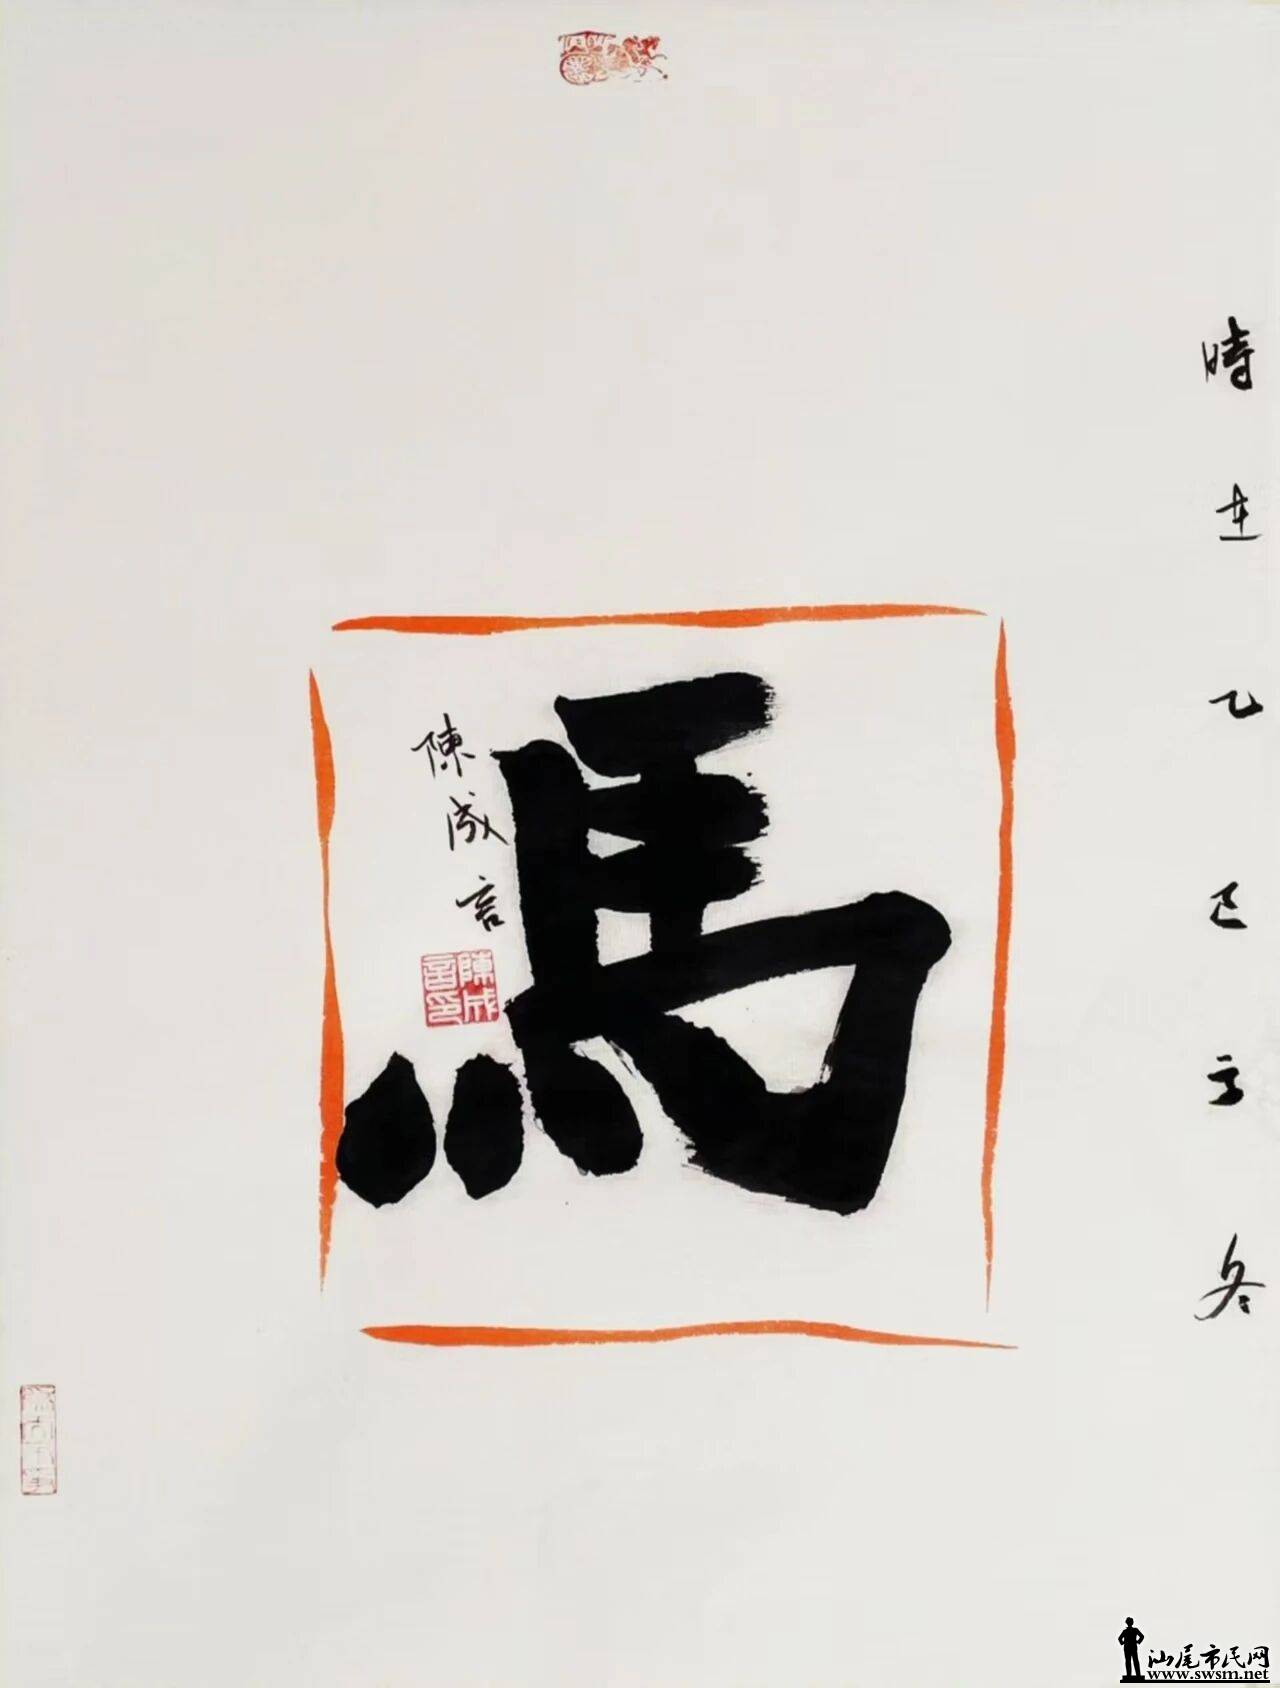 時在乙巳方冬
馬
陳成言
陳成言印
汕尾市民网
www.swsm.net